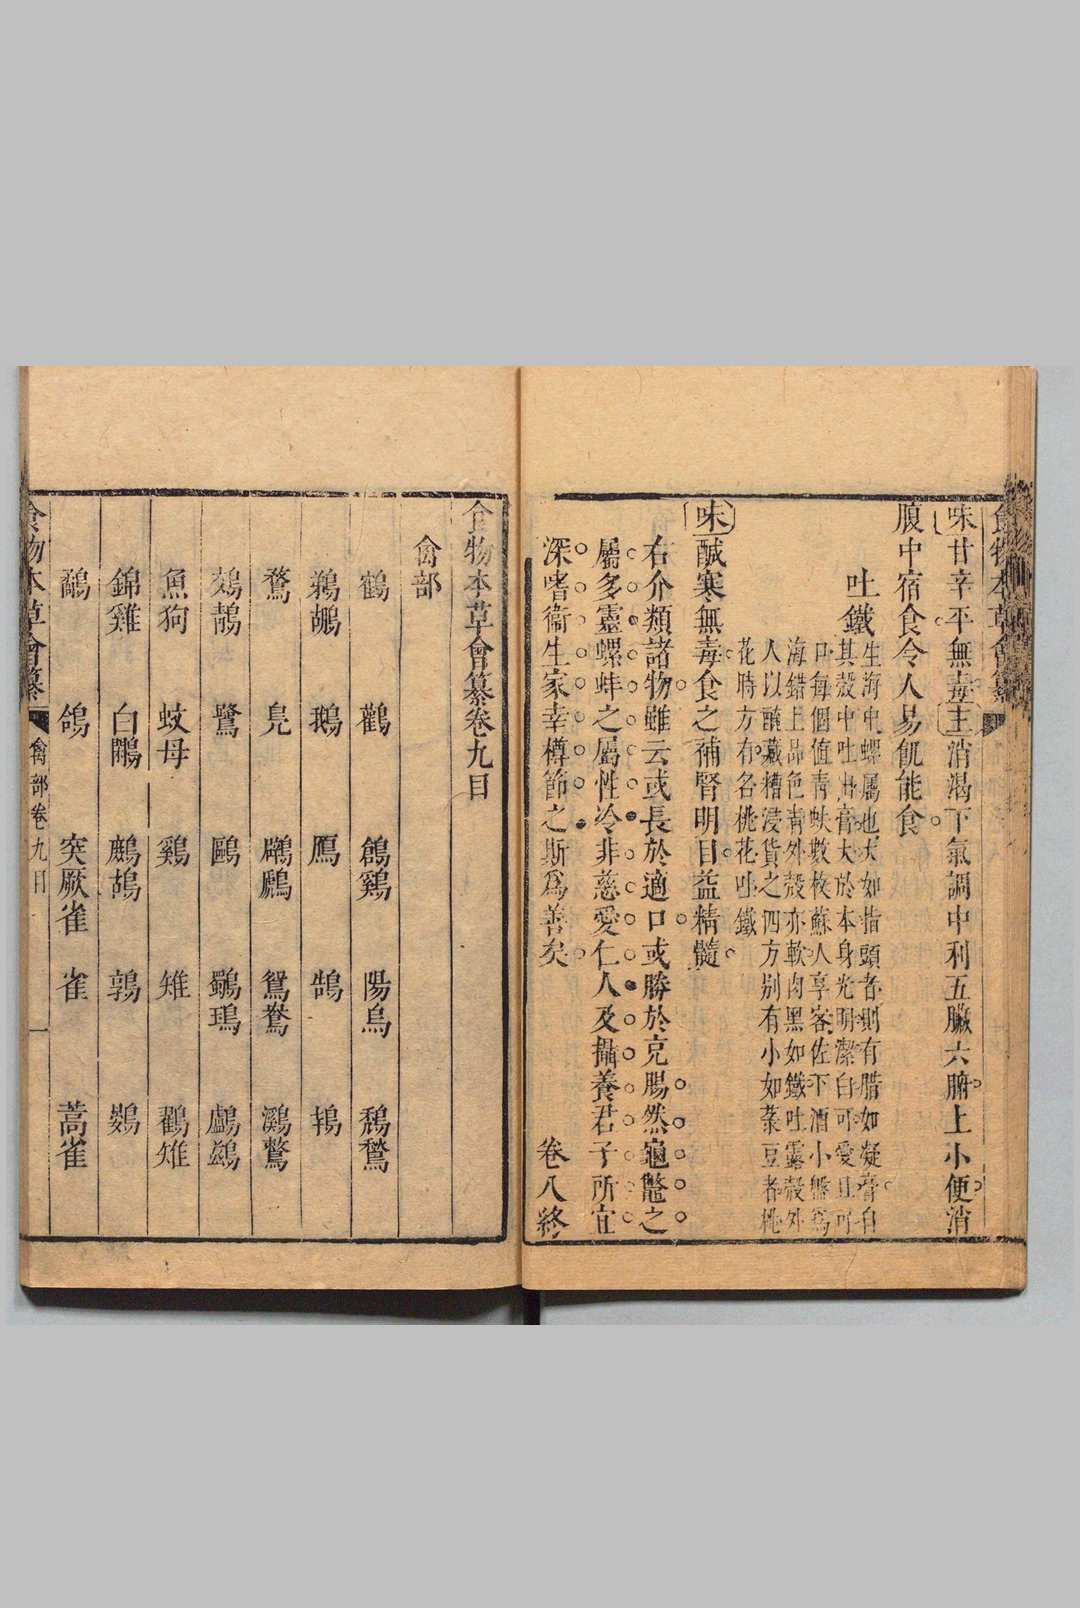 食物本草會纂
味甘辛平無毒主消渴下氣調中利五臟六腑止小便消
腹中宿食令人易飢能食
吐鐵
生海中螺屬也大如指頭者則有腊如凝膏白
其殼中吐出膏大於本身光明潔白可愛且可
口每個值青蚨數枚蘇人享客佐下酒小盤為
海錯上品色青外殼亦軟肉黑如鐵吐露殼外
人以醃藏糟浸貨之四方別有小如菉豆者桃
花時方有名桃花吐鐵
味醎寒無毒食之補腎明目益精髓
右介類諸物雖云或長於適口或勝於克腸然龜鼈之
屬多靈螺蚌之屬性冷非慈愛仁人及攝養君子所宜
深嗜衞生家幸樽節之斯為善矣
卷八終
食物本草會纂卷九目
禽部
鶴 鸛 鶬鷄 陽鳥 鵚鶖
鵜鶘 鵝 鴈 鵠 鴇
鶩 鳧 鸊鷉 鴛鴦 鸂鷘
鵁鶄 鷺 鷗 鸀鳿 鸕鷀
魚狗 蚊母 鷄 雉 鸐雉
錦雞 白鷴 鷓鴣 鶉 鷃
鷸 鴿 突厥雀 雀 蒿雀
食物本草會纂 禽部卷九目 一